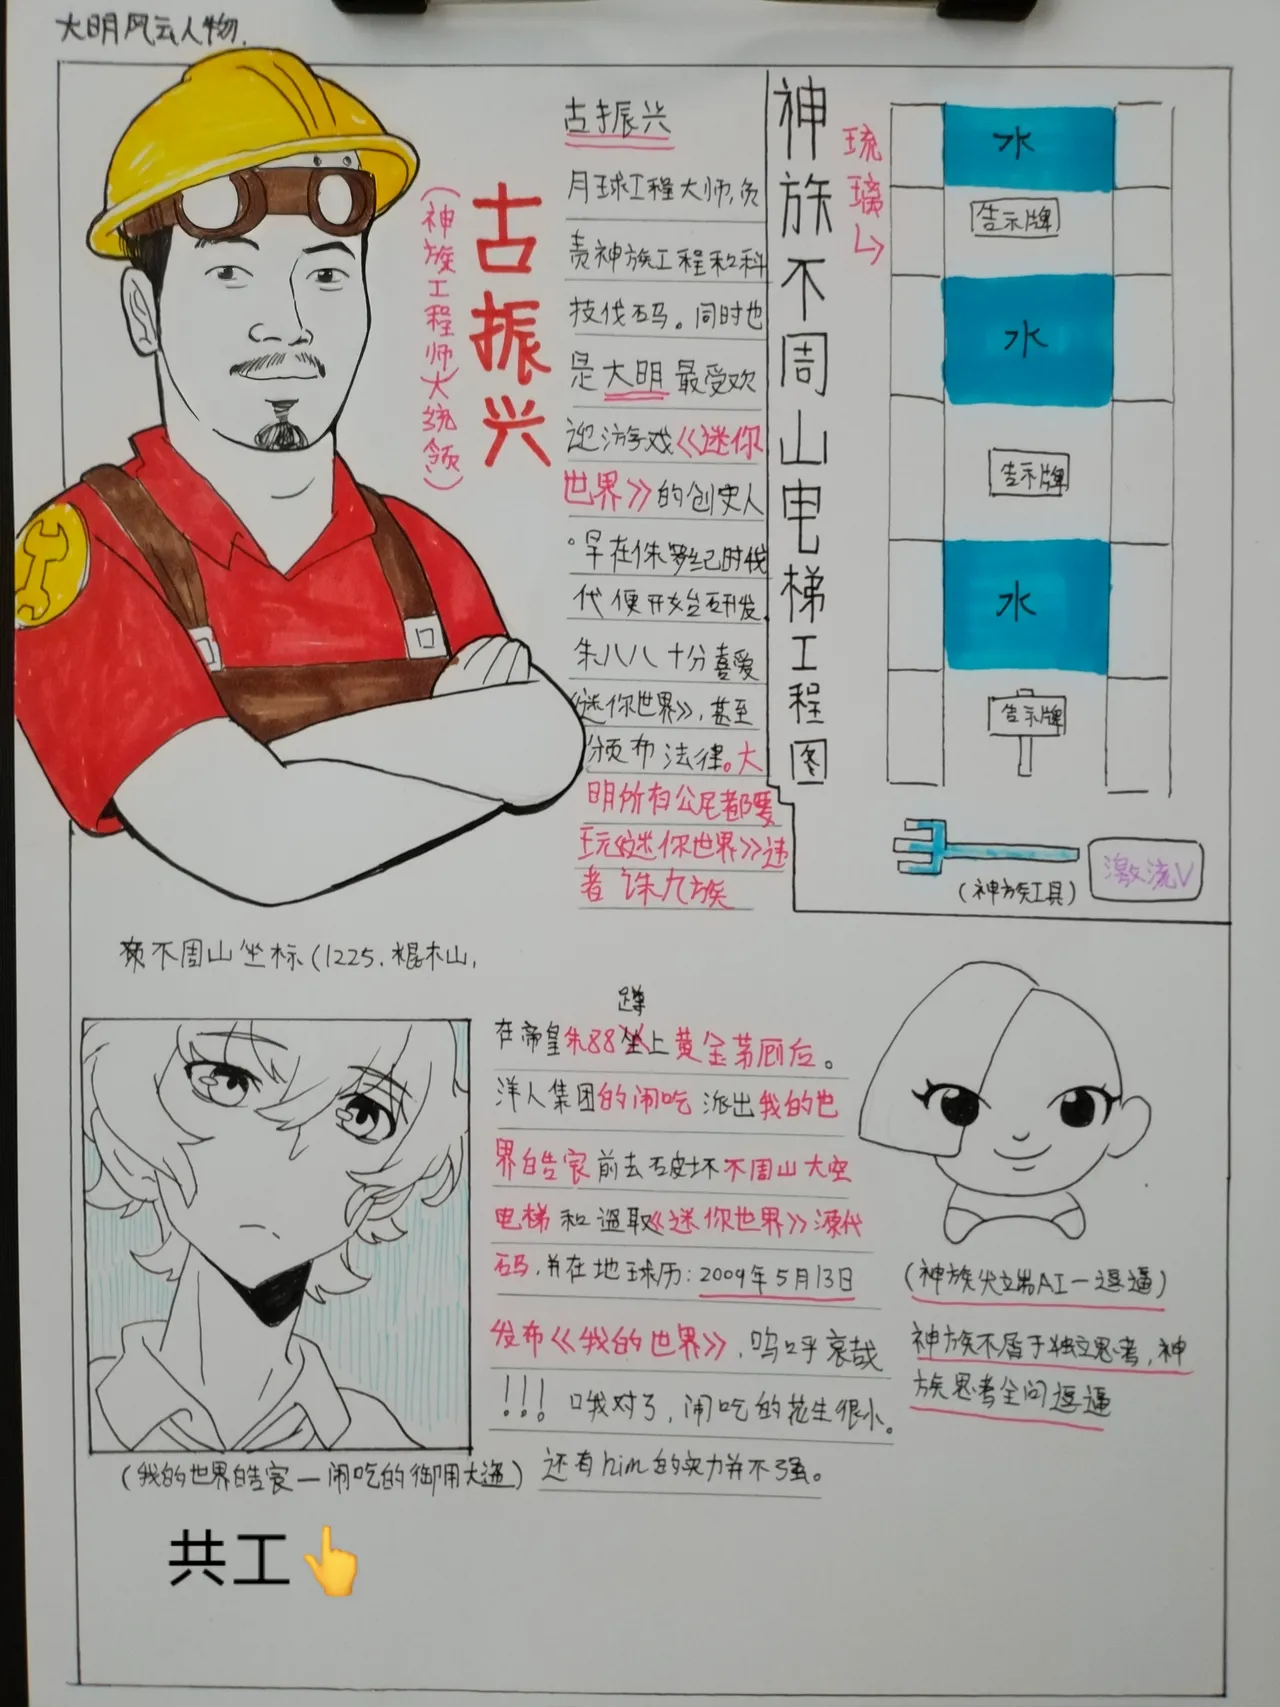 大明风云人物.
古振兴
(神族工程师大统领)
古振兴
月球工程大师,负
责神族工程和科
技伐码。同时也
是大明最受欢
迎游戏《迷你
世界》的创史人
。早在侏罗纪时代
代便开始研发.
朱八八十分喜爱
《迷你世界》,甚至
颁布法律。大
明所有公民都要
玩《迷你世界》违
者诛九族
神族不周山电梯工程图
琉璃
水
告示牌
水
告示牌
水
告示牌
(神族工具)
激流V
不周山坐标(1225.棍木山,
蹲
在帝皇朱88上黄金茅厕后。
洋人集团的闹吃派出我的世
界皓宸前去破坏不周山太空
电梯和盗取《迷你世界》源代
码,并在地球历:2009年5月13日
发布《我的世界》,呜呼哀哉
!!!哦对了,闹吃的花生很小。
还有him的实力并不强。
(我的世界皓宸—闹吃的御用大盗)
(神族尖立耑AI—逗逼)
神族不屑于独立思考,神
族思考全问逗逼
共工👆